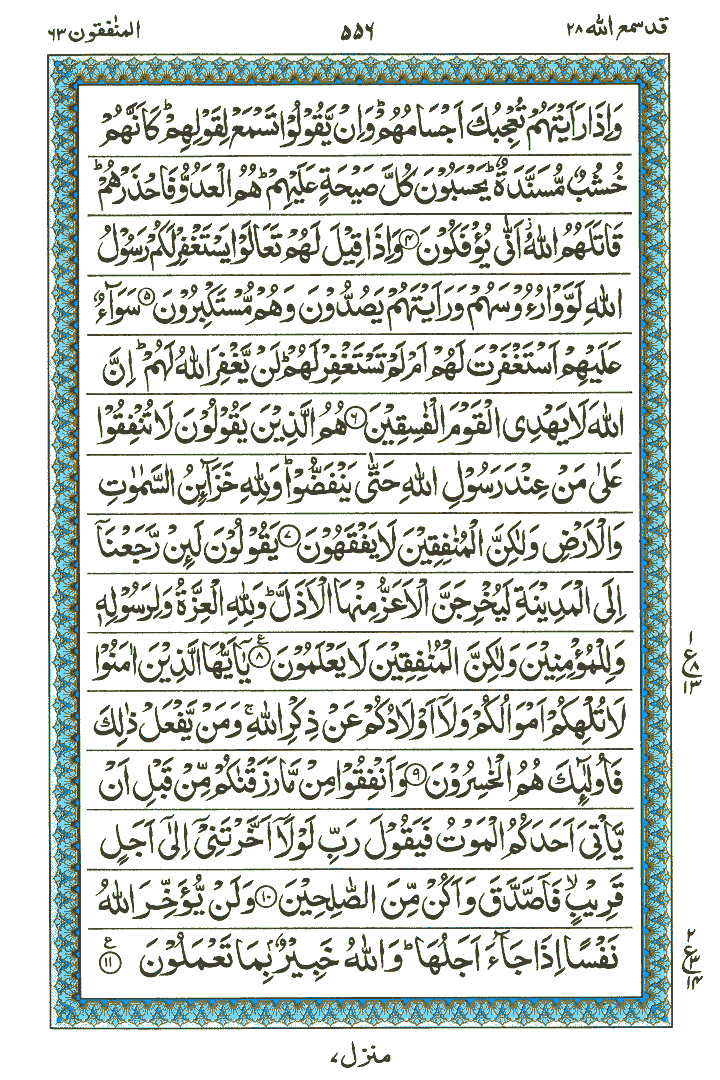 قد سمع الله ٢٨
٥٥٦
المنٰفقون ٦٣
وَاِذَا رَاَيْتَهُمْ تُعْجِبُكَ اَجْسَامُهُمْ ؕ وَاِنْ يَّقُوْلُوْا تَسْمَعْ لِقَوْلِهِمْ ؕ كَاَنَّهُمْ
خُشُبٌ مُّسَنَّدَةٌ ؕ يَحْسَبُوْنَ كُلَّ صَيْحَةٍ عَلَيْهِمْ ؕ هُمُ الْعَدُوُّ فَاحْذَرْهُمْ ؕ
قَاتَلَهُمُ اللّٰهُ ؗ اَنّٰى يُؤْفَكُوْنَ ﴿۴﴾ وَاِذَا قِيْلَ لَهُمْ تَعَالَوْا يَسْتَغْفِرْ لَكُمْ رَسُوْلُ
اللّٰهِ لَوَّوْا رُءُوْسَهُمْ وَرَاَيْتَهُمْ يَصُدُّوْنَ وَهُمْ مُّسْتَكْبِرُوْنَ ﴿۵﴾ سَوَآءٌ
عَلَيْهِمْ اَسْتَغْفَرْتَ لَهُمْ اَمْ لَمْ تَسْتَغْفِرْ لَهُمْ ؕ لَنْ يَّغْفِرَ اللّٰهُ لَهُمْ ؕ اِنَّ
اللّٰهَ لَا يَهْدِى الْقَوْمَ الْفٰسِقِيْنَ ﴿۶﴾ هُمُ الَّذِيْنَ يَقُوْلُوْنَ لَا تُنْفِقُوْا
عَلٰى مَنْ عِنْدَ رَسُوْلِ اللّٰهِ حَتّٰى يَنْفَضُّوْا ؕ وَلِلّٰهِ خَزَآئِنُ السَّمٰوٰتِ
وَالْاَرْضِ وَلٰكِنَّ الْمُنٰفِقِيْنَ لَا يَفْقَهُوْنَ ﴿۷﴾ يَقُوْلُوْنَ لَئِنْ رَّجَعْنَاۤ
اِلَى الْمَدِيْنَةِ لَيُخْرِجَنَّ الْاَعَزُّ مِنْهَا الْاَذَلَّ ؕ وَلِلّٰهِ الْعِزَّةُ وَلِرَسُوْلِهٖ
وَلِلْمُؤْمِنِيْنَ وَلٰكِنَّ الْمُنٰفِقِيْنَ لَا يَعْلَمُوْنَ ﴿۸﴾ ع يٰۤاَيُّهَا الَّذِيْنَ اٰمَنُوْا
١ ع ٨ ١٣
لَا تُلْهِكُمْ اَمْوَالُكُمْ وَلَاۤ اَوْلَادُكُمْ عَنْ ذِكْرِ اللّٰهِ ۚ وَمَنْ يَّفْعَلْ ذٰلِكَ
فَاُولٰٓئِكَ هُمُ الْخٰسِرُوْنَ ﴿۹﴾ وَاَنْفِقُوْا مِنْ مَّا رَزَقْنٰكُمْ مِّنْ قَبْلِ اَنْ
يَّاْتِىَ اَحَدَكُمُ الْمَوْتُ فَيَقُوْلَ رَبِّ لَوْلَاۤ اَخَّرْتَنِىْۤ اِلٰٓى اَجَلٍ
قَرِيْبٍ ۙ فَاَصَّدَّقَ وَاَكُنْ مِّنَ الصّٰلِحِيْنَ ﴿۱۰﴾ وَلَنْ يُّؤَخِّرَ اللّٰهُ
نَفْسًا اِذَا جَآءَ اَجَلُهَا ؕ وَاللّٰهُ خَبِيْرٌۢ بِمَا تَعْمَلُوْنَ ﴿۱۱﴾ ع
٢ ع ٣ ١٤
منزل ٧